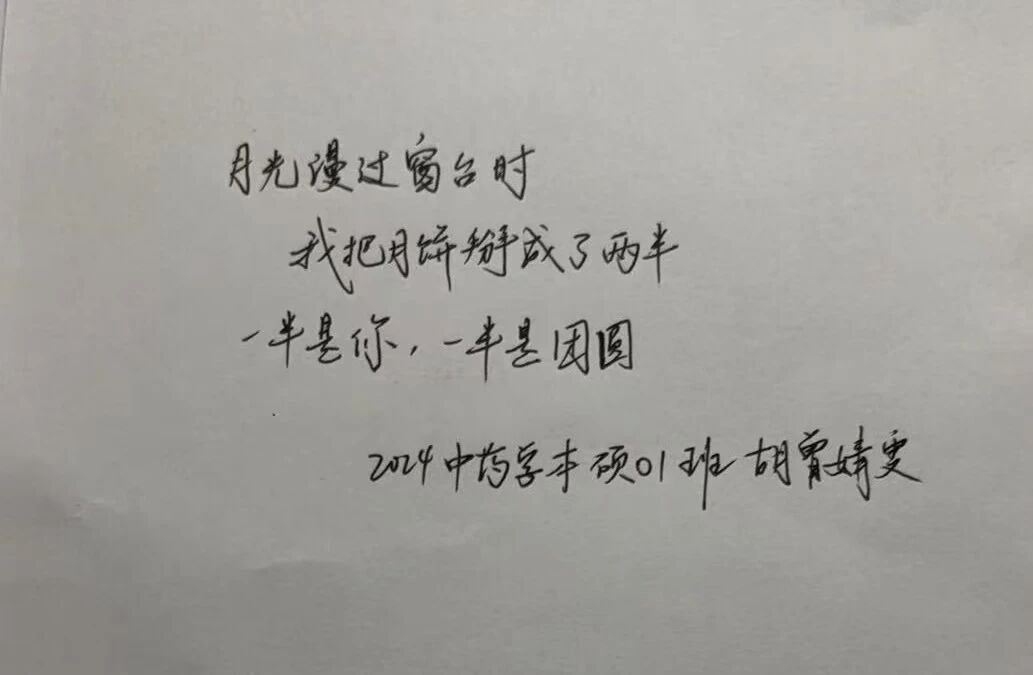 月光漫过窗台时
我把月饼掰成了两半
一半是你,一半是团圆
2024中药学本硕01班 胡曾婧雯